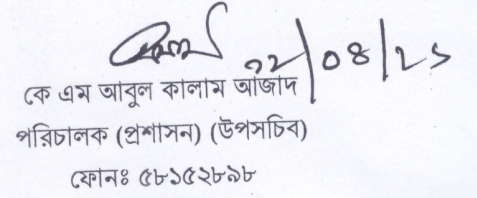 ০২/০৪/২১
কে এম আবুল কালাম আজাদ
পরিচালক (প্রশাসন) (উপসচিব)
ফোনঃ ৫৮১৫২৮৯৮